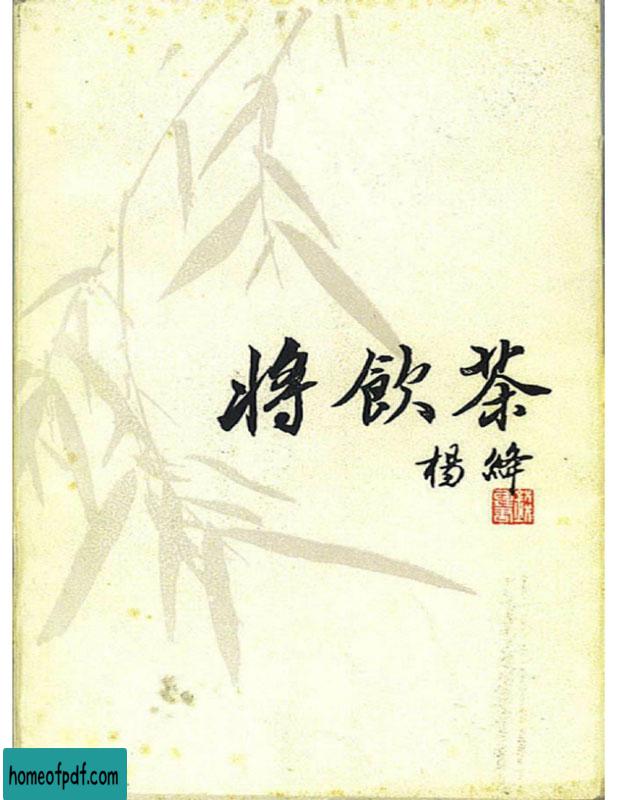 将飲茶
楊絳
homeofpdf.com